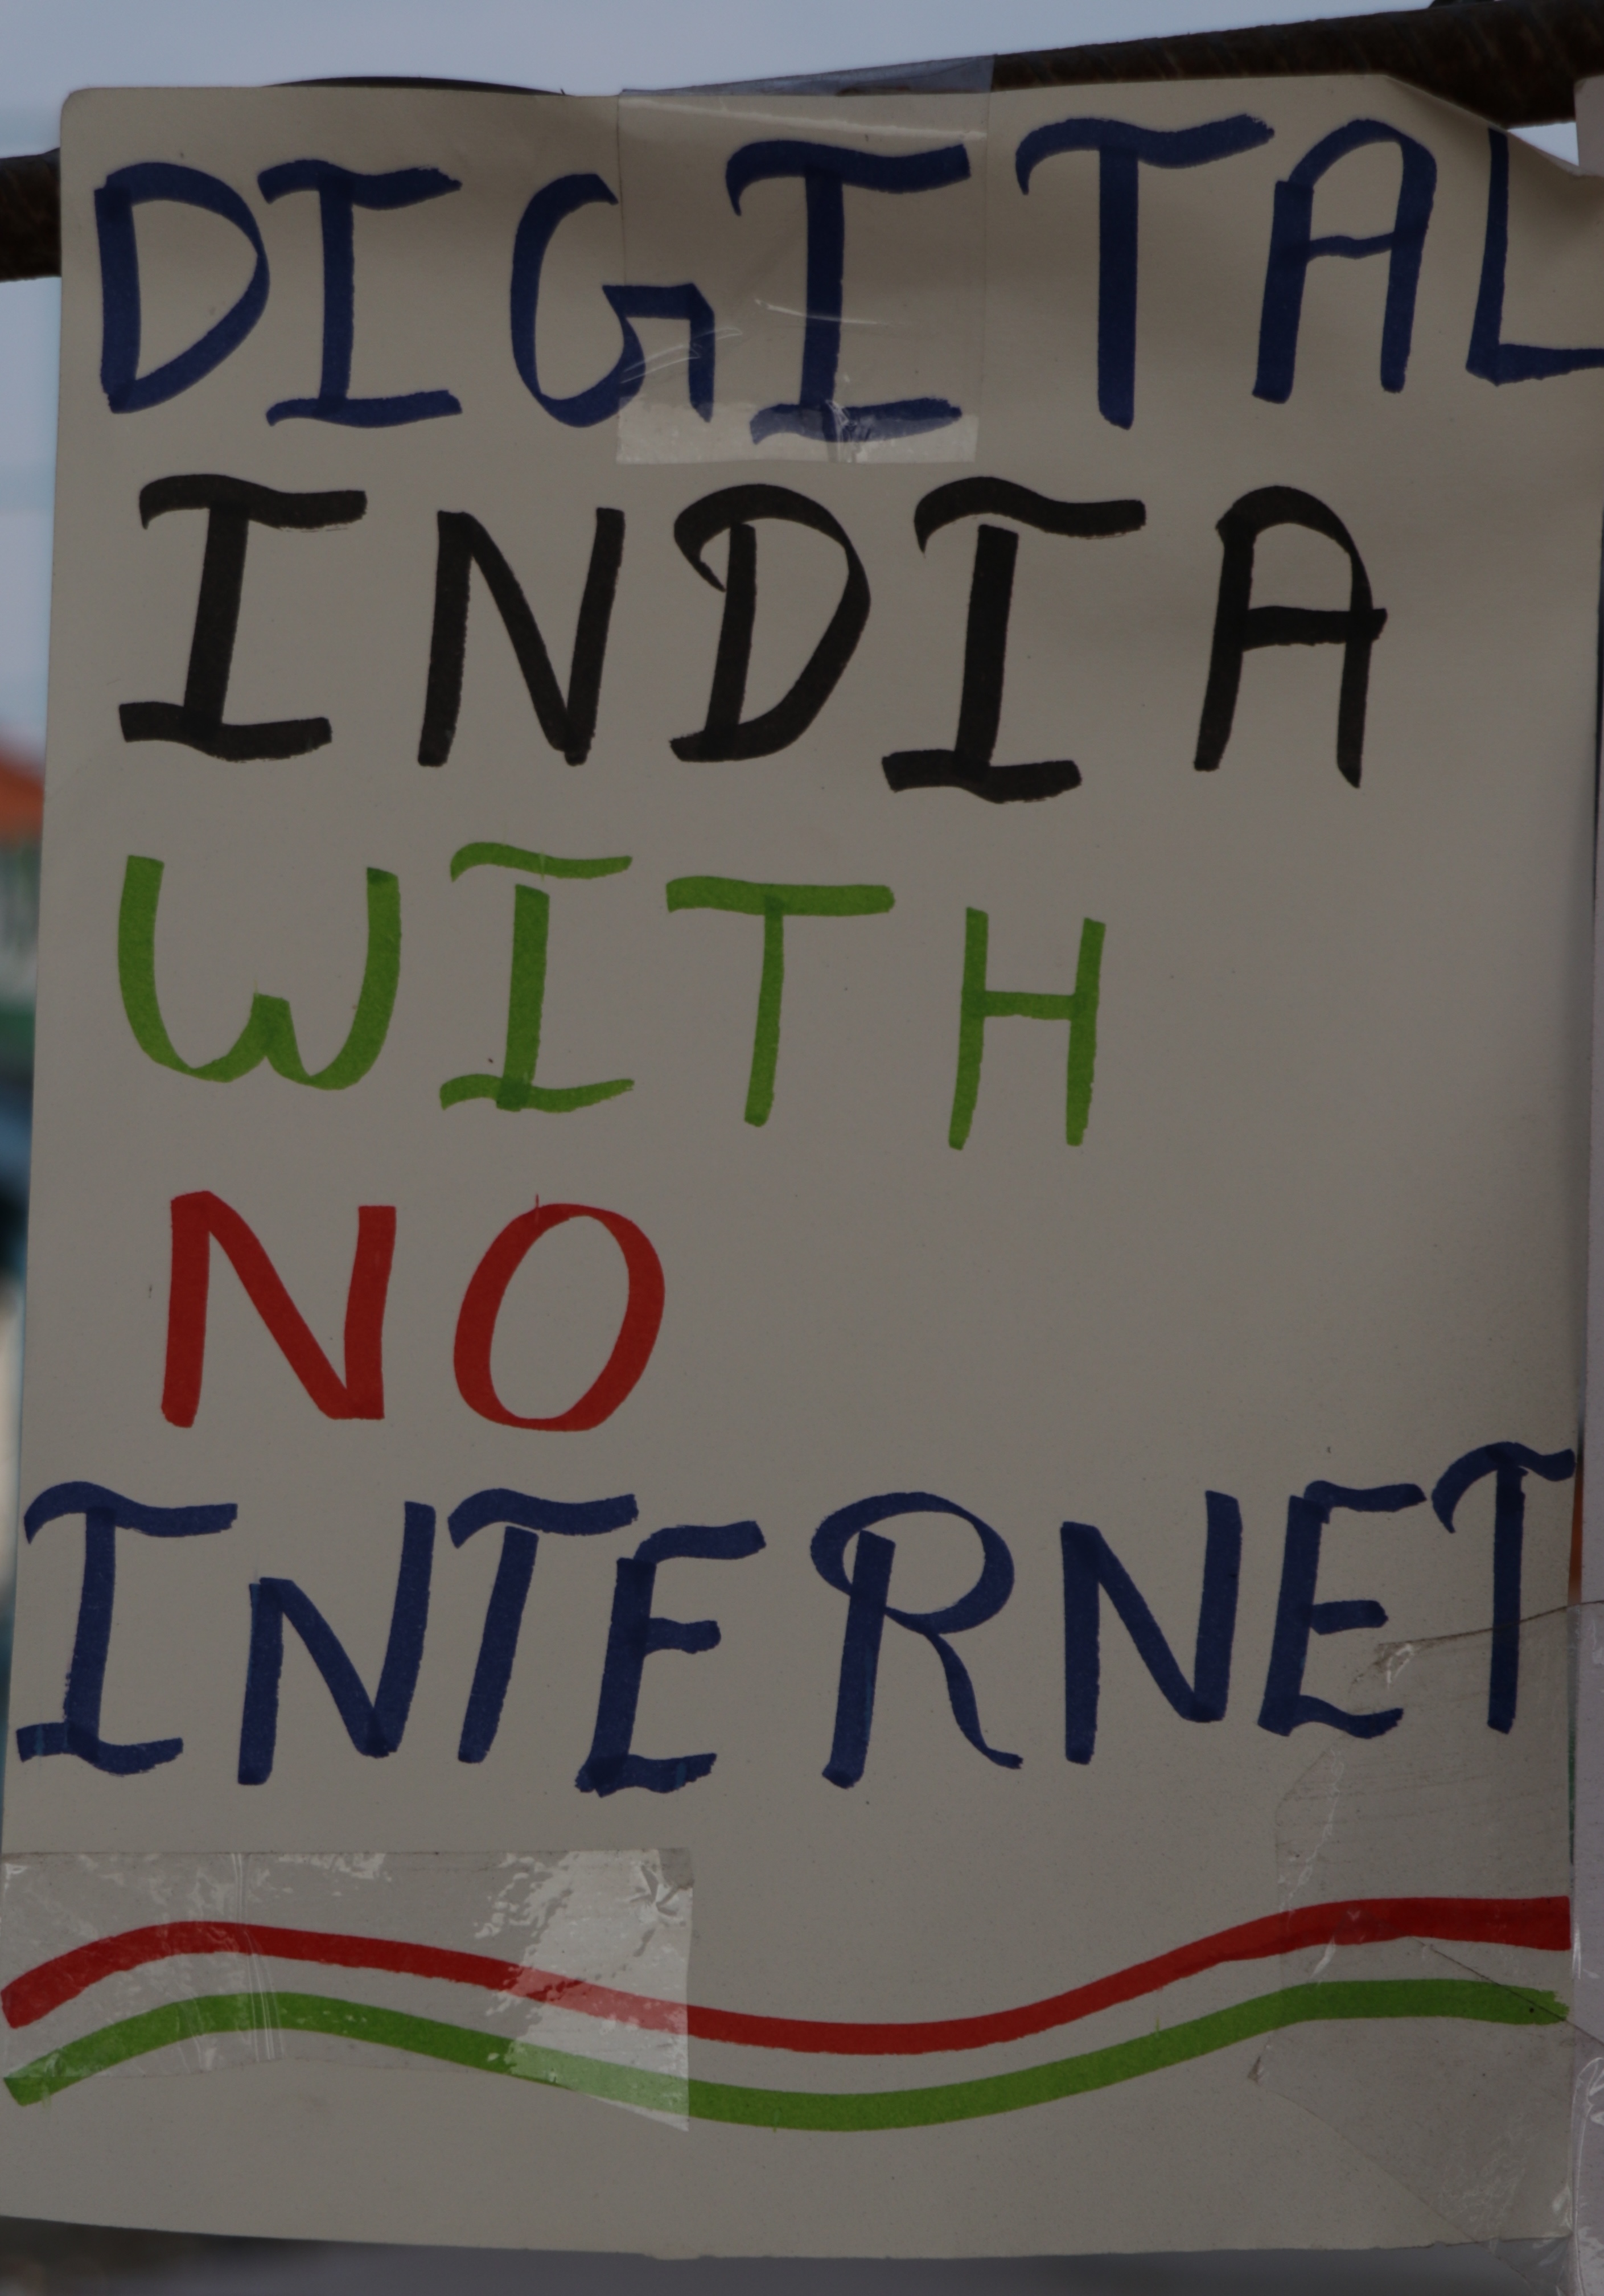 DIGITAL
INDIA
WITH
NO
INTERNET